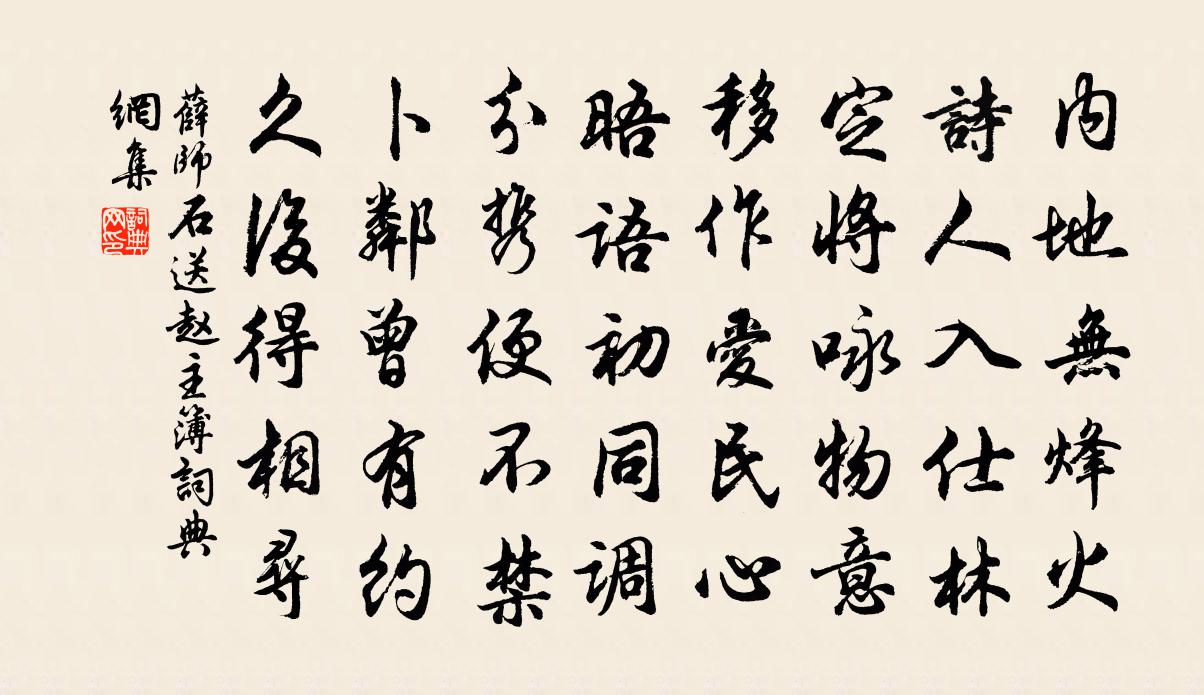 内地無烽火
詩人入仕林
定將咏物意
移作愛民心
晤語初同調
分携便不禁
卜鄰曾有約
久後得相尋
薛師石送赵主簿詞典
網集
詞典网印